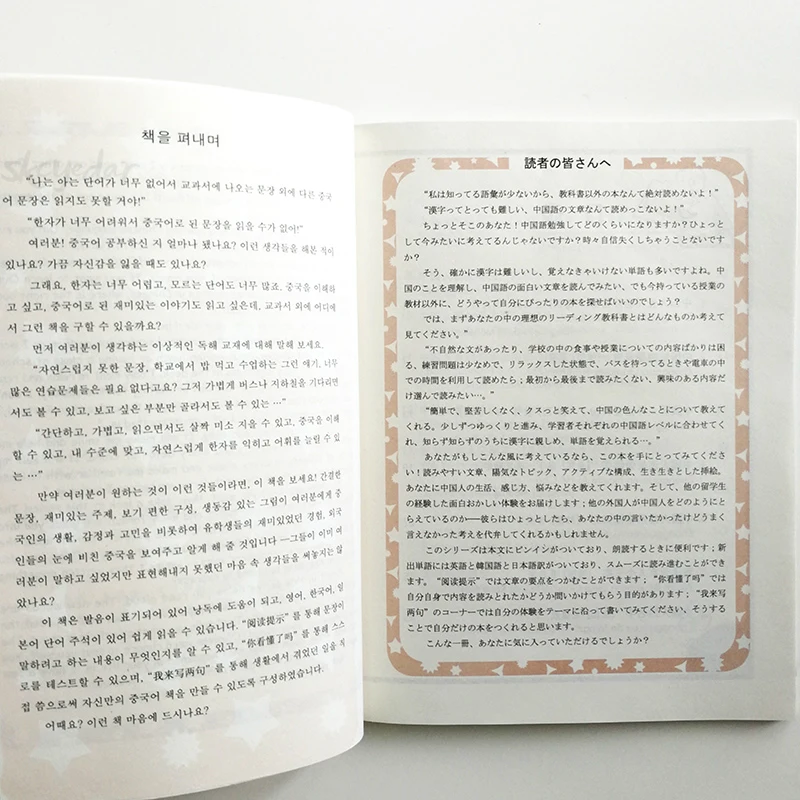 책을 펴내며
“나는 아는 단어가 너무 없어서 교과서에 나오는 문장 외에 다른 중국
어 문장은 읽지도 못할 거야!”
“한자가 너무 어려워서 중국어로 된 문장을 읽을 수가 없어!”
여러분! 중국어 공부하신 지 얼마나 됐나요? 이런 생각들을 해본 적이
있나요? 가끔 자신감을 잃을 때도 있나요?
그래요, 한자는 너무 어렵고, 모르는 단어도 너무 많죠. 중국을 이해하
고 싶고, 중국어로 된 재미있는 이야기도 읽고 싶은데, 교과서 외에 어디에
서 그런 책을 구할 수 있을까요?
먼저 여러분이 생각하는 이상적인 독해 교재에 대해 말해 보세요.
“자연스럽지 못한 문장, 학교에서 밥 먹고 수업하는 그런 얘기, 너무
많은 연습문제들은 필요 없다고요? 그저 가볍게 버스나 지하철을 기다리면
서도 볼 수 있고, 보고 싶은 부분만 골라서도 볼 수 있는 …”
“간단하고, 가볍고, 읽으면서도 살짝 미소 지을 수 있고, 중국을 이해
할 수 있고, 내 수준에 맞고, 자연스럽게 한자를 익히고 어휘를 늘릴 수 있
는 …”
만약 여러분이 원하는 것이 이런 것들이라면, 이 책을 보세요! 간결한
문장, 재미있는 주제, 보기 편한 구성, 생동감 있는 그림이 여러분에게 중
국인의 생활, 감정과 고민을 비롯하여 유학생들의 재미있었던 경험, 외국
인들의 눈에 비친 중국을 보여주고 알게 해 줄 것입니다 —그들이 이미 여
러분이 말하고 싶었지만 표현해내지 못했던 마음 속 생각들을 써놓지는 않
았나요?
이 책은 발음이 표기되어 있어 낭독에 도움이 되고, 영어, 한국어, 일
본어 단어 주석이 있어 쉽게 읽을 수 있습니다. “阅读提示” 를 통해 문장이
말하려고 하는 내용이 무엇인지를 알 수 있고, “你看懂了吗” 를 통해 스스
로를 테스트할 수 있으며, “我来写两句” 를 통해 생활에서 겪었던 일을 직
접 씀으로써 자신만의 중국어 책을 만들 수 있도록 구성하였습니다.
어때요? 이런 책 마음에 드시나요?
読者の皆さんへ
“私は知ってる語彙が少ないから、教科書以外の本なんて絶対読めないよ！”
“漢字ってとっても難しい、中国語の文章なんて読めっこないよ！”
ちょっとそこのあなた！中国語勉強してどのくらいになりますか？ひょっと
して今みたいに考えてるんじゃないですか？時々自信失くしちゃうことないです
か？
そう、確かに漢字は難しいし、覚えなきゃいけない単語も多いですよね。中
国のことを理解し、中国語の面白い文章を読んでみたい、でも今持っている授業の
教材以外に、どうやって自分にぴったりの本を探せばいいのでしょう？
では、まずあなたの中の理想のリーディング教科書とはどんなものか考えて
見てください。”
“不自然な文があったり、学校の中の食事や授業についての内容ばかりは困
る、練習問題は少なめで、リラックスした状態で、バスを待ってるときや電車の中
での時間を利用して読めたら；最初から最後まで読みたくない、興味のある内容だ
け選んで読みたい…。”
“簡単で、堅苦しくなく、クスっと笑えて、中国の色んなことについて教えて
くれる。少しずつゆっくりと進み、学習者それぞれの中国語レベルに合わせてく
れ、知らず知らずのうちに漢字に親しめ、単語を覚えられる…。”
あなたがもしこんな風に考えているなら、この本を手にとってみてくださ
い！読みやすい文章、陽気なトピック、アクティブな構成、生き生きとした挿絵。
あなたに中国人の生活、感じ方、悩みなどを教えてくれます。そして、他の留学生
の経験した面白おかしい体験をお届けします；他の外国人が中国人をどのようにと
らえているのか—彼らはひょっとしたら、あなたの中の言いたかったけどうまく
言えなかった考えを代弁してくれるかもしれません。
このシリーズは本文にピンインがついており、朗読するときに便利です；新
出単語には英語と韓国語と日本語訳がついており、スムーズに読み進むことができ
ます。“阅读提示”では文章の要点をつかむことができます；“你看懂了吗”では
自分自身で内容を読みとれたかどうか問いかけてもらう目的があります；“我来写
两句”のコーナーでは自分の体験をテーマに沿って書いてみてください、そうする
ことで自分だけの本をつくれると思います。
こんな一冊、あなたに気に入っていただけるでしょうか？